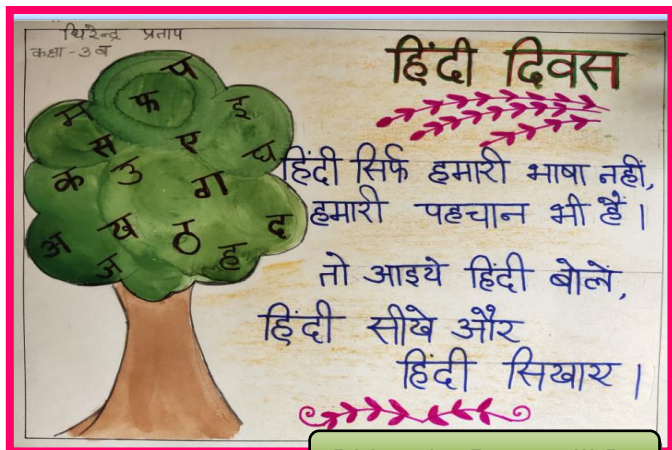 थिरेन्द्र प्रताप
कक्षा - 3 ब
हिंदी दिवस
प
म फ इ
स ए घ
क उ ग
अ ख ठ ह द
ज
हिंदी सिर्फ हमारी भाषा नहीं,
हमारी पहचान भी हैं।
तो आइये हिंदी बोले,
हिंदी सीखे और
हिंदी सिखाए।